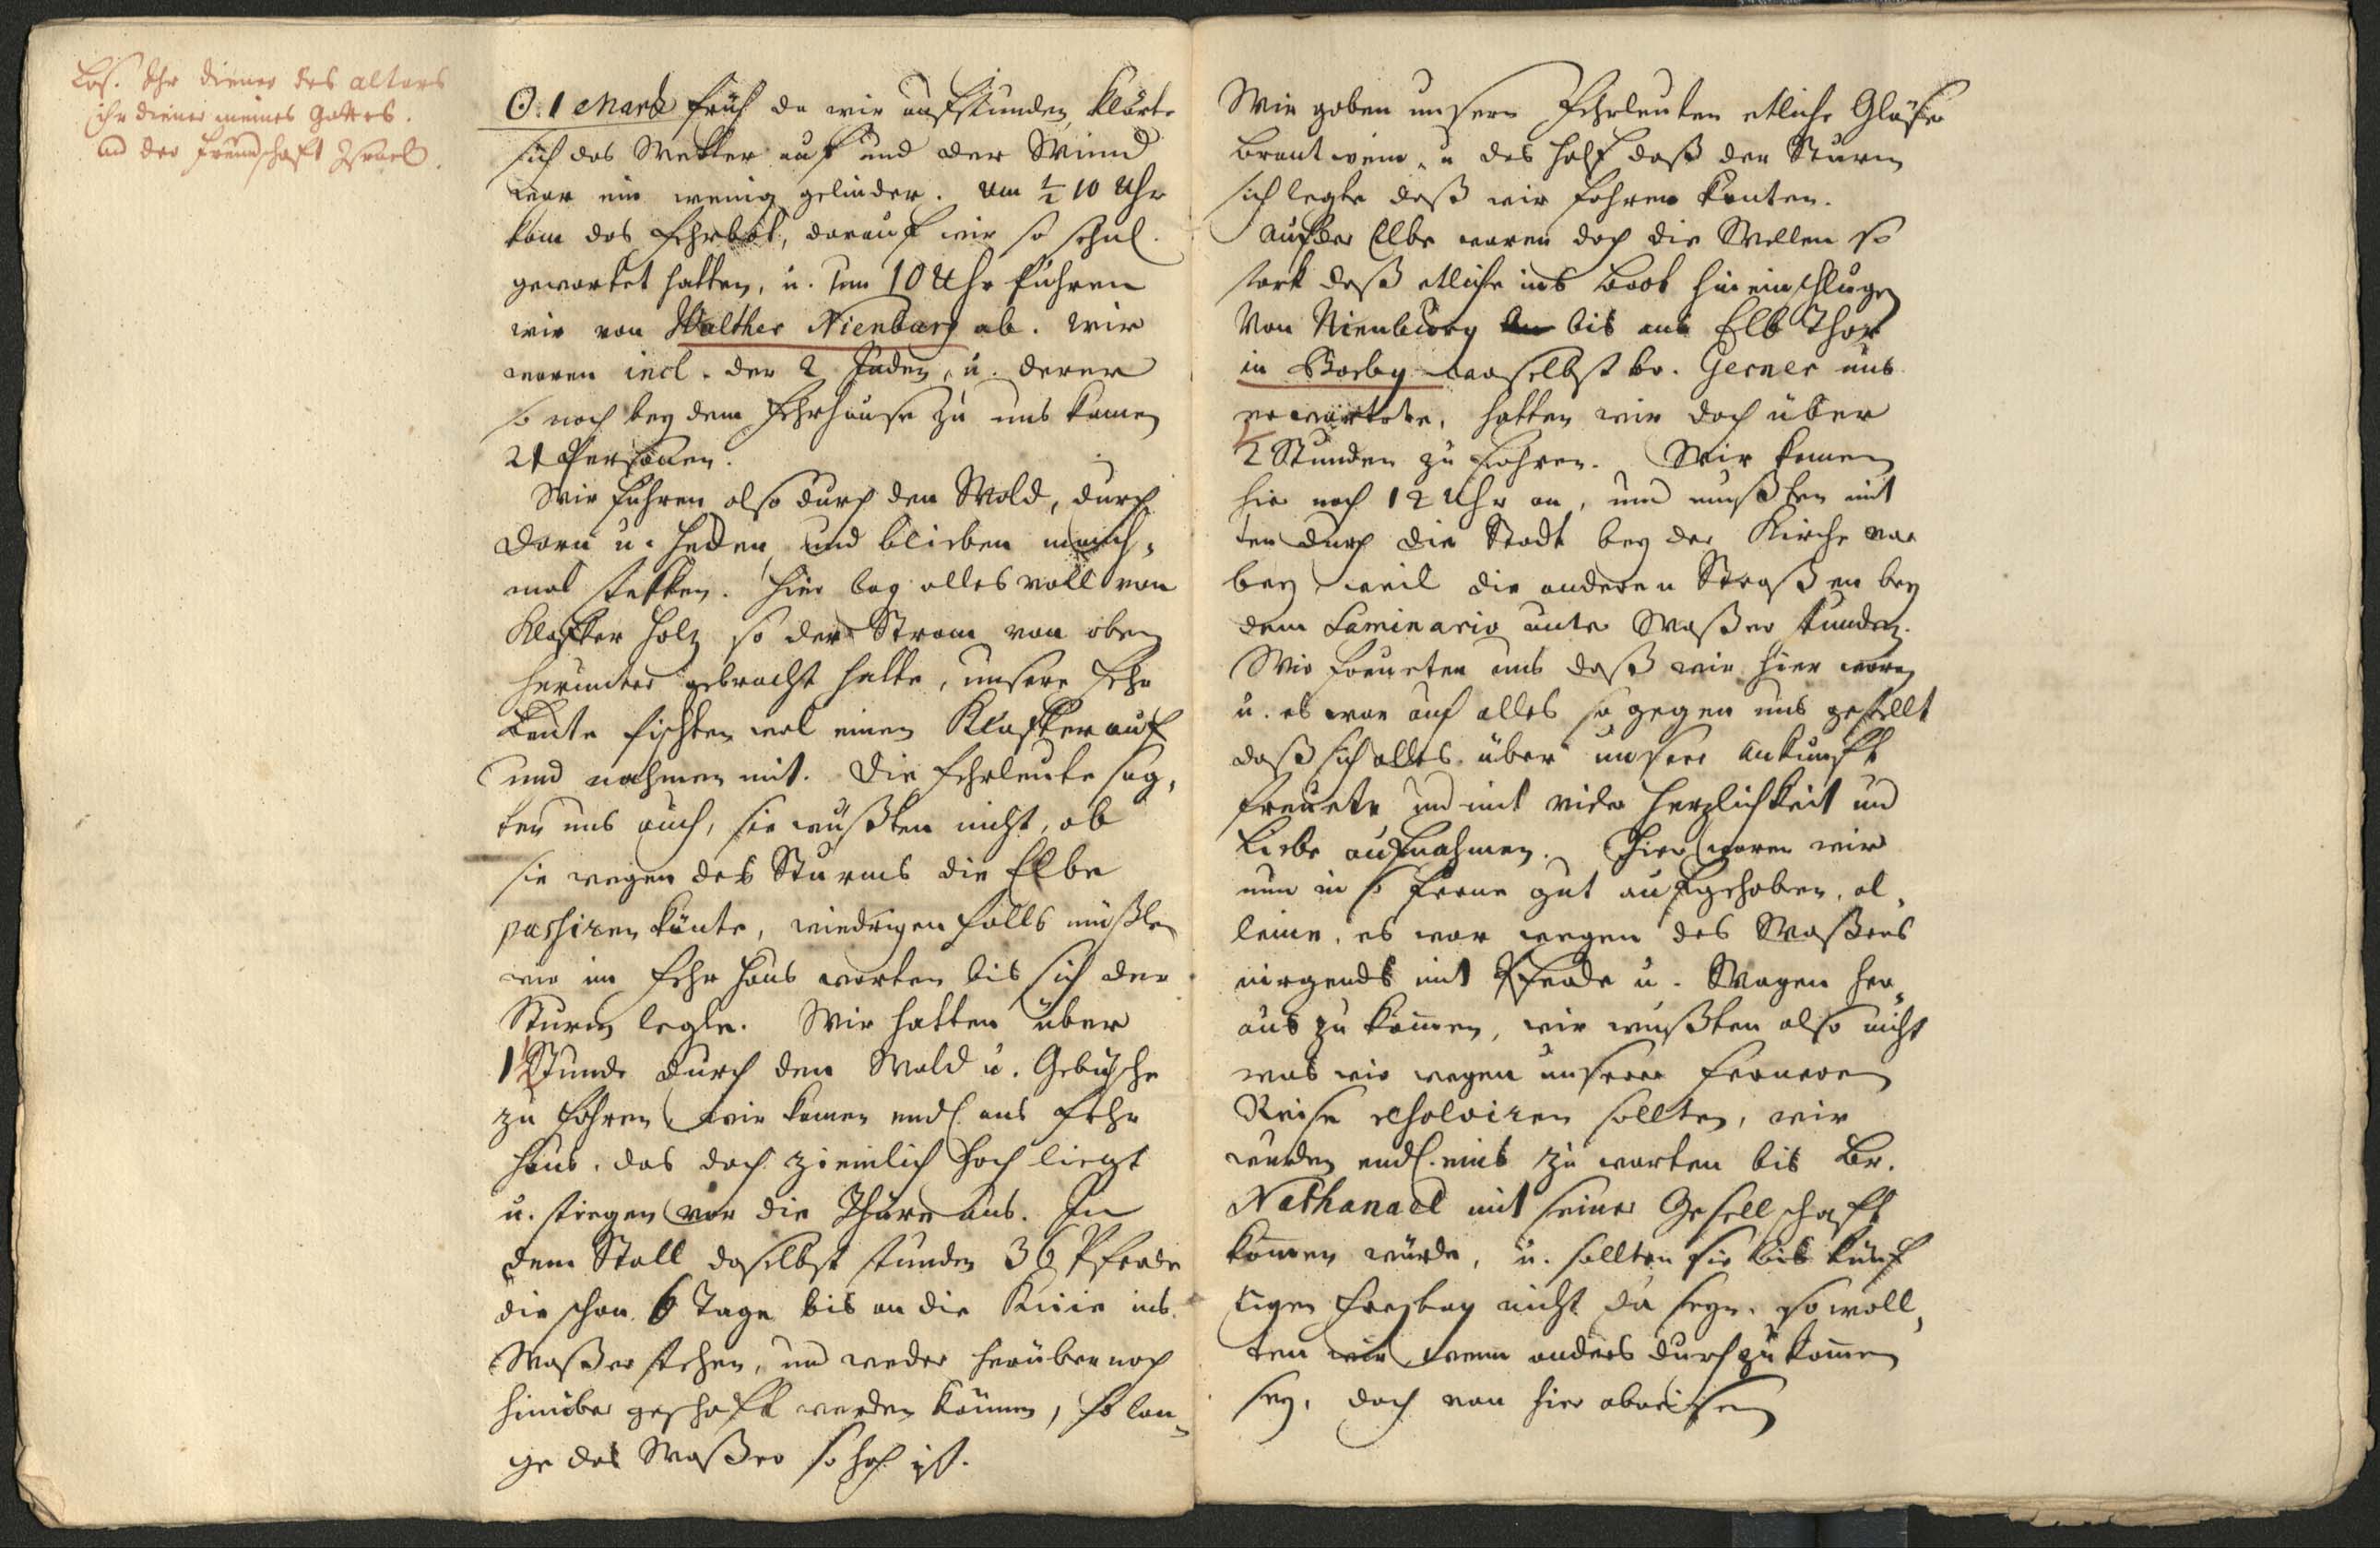 Los. Ihr diener des altars
ihr diener meines Gottes.
an der freundschaft Israel.
☉. 1 Martz früh da wir aufstunden, klärte
sich das Wetter auf und der Wind
war ein wenig gelinder. Um ½ 10 Uhr
kam das Fehrbot, darauf wir so sehnl.
gewartet hatten, u. um 10 Uhr fuhren
wir von Walther Nienburg ab. Wir
waren incl. der 2 Juden, u. derer
so noch bey dem Fehrhause zu uns kamen
21 Personen.
Wir fuhren also durch den Wald, durch
Dorn u. Hecken, und blieben manch-
mal stekken. Hier lag alles voll von
Klafter Holz so der Strom von oben
herunter gebracht hatte, unsere Fehr
Leute fischten wol einen Klafter auf
und nahmen mit. Die Fehrleute sag-
ten uns auch, sie wüßten nicht, ob
sie wegen des Sturms die Elbe
passiren könte, wiedrigen falls müßten
wir im Fehr Haus warten bis sich der
Sturm legte. Wir hatten über
1½ Stunde durch den Wald u. Gebüsche
zu fahren wir kamen endl. ans Fehr
Haus, das doch ziemlich hoch liegt
u. stiegen vor die Thüre aus. In
dem Stall daselbst stunden 36 Pferde
die schon 6 Tage bis an die Kniee ins
Waßer stehen, und weder herüber noch
hinüber geschaft werden können, so lan-
ge das Waßer so hoch ist.
Wir gaben unsern Fehrleuten etliche Gläser
Brantwein, u das half daß der Sturm
sich legte daß wir fahren konten.
Auf der Elbe waren doch die Wellen so
stark daß etliche ins Boot hineinschlugen
Von Nienburg bis ans Elb Thor
in Barby woselbst br. Gerner uns
erwartete, hatten wir doch über
2 Stunden zu fahren. Wir kamen
hier nach 12 Uhr an, und mußten mit
ten durch die Stadt bey der Kirche vor
bey weil die anderen Straßen bey
dem Seminario unter Waßer stunden.
Wir freueten uns daß wir hier waren
u. es war auch alles so gegen uns gestellt
daß sich alles über unsere Ankunft
freuete und mit vieler Herzlichkeit und
Liebe aufnahmen. Hier waren wir
nun in so ferne gut aufgehoben, al-
leine, es war wegen des Waßers
nirgends mit Pferde u. Wagen her-
aus zu kom̄en, wir wußten also nicht
was wir wegen unserer ferneren
Reise resolviren sollten, wir
wurden endl. eins zu warten bis Br.
Nathanael mit seiner Gesellschaft
kom̄en würde, u. sollten sie bis künf
tigen Freytag nicht da seyn, so woll-
ten wir wenn anders durchzukom̄en
sey, doch von hier abreisen